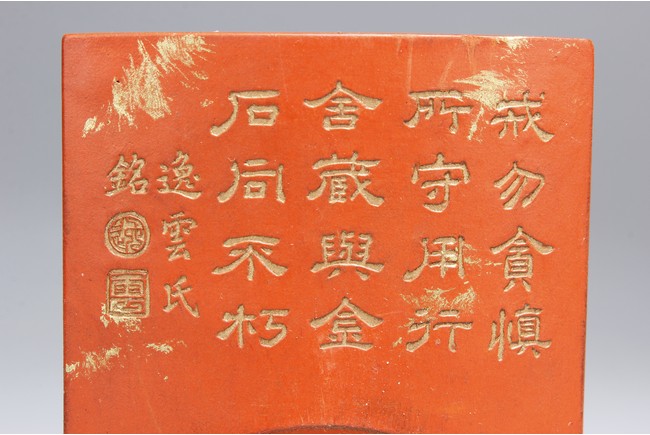 戒勿貪慎
所守用行
舍蔵與金
石同不朽
逸雲氏
銘
逸
雲